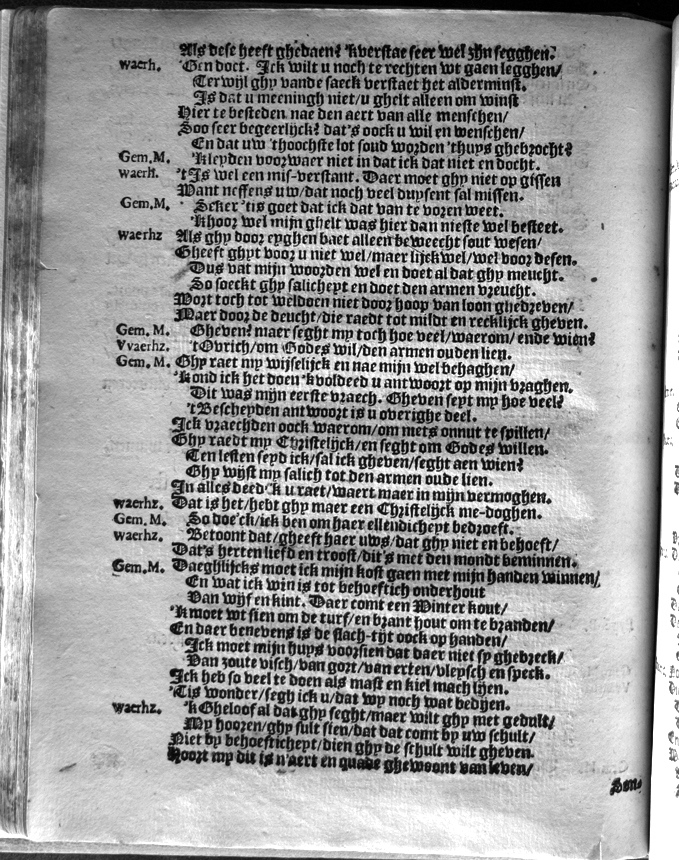 Als dese heeft ghedaen? 'kverstae seer wel zijn segghen.
waerh. Gen doet. Ick wilt u noch te rechten wt gaen legghen/
Terwijl ghy vande saeck verstaet het alderminst.
Is dat u meeningh niet/u ghelt alleen om winst
Hier te besteden nae den aert van alle menschen/
Soo seer begeerlijck? dat's oock u wil en wenschen/
En dat uw 'thoochste lot soud worden 'thuys ghebrocht?
Gem. M. 'kleyden voorwaer niet in dat ick dat niet en docht.
waerh. 't Is wel een mis-verstant. Daer moet ghy niet op gissen
Want neffens uw/dat noch veel duysent sal missen.
Gem. M. Seker 'tis goet dat ick dat van te voren weet.
'khoor wel mijn ghelt was hier dan nieste wel besteet.
waerhz Als ghy door eyghen baet alleen beweecht sout wesen/
Gheeft ghyt voor u niet wel/maer lijckwel/wel voor desen.
Dus vat mijn woorden wel en doet al dat ghy meucht.
So soeckt ghy salicheyt en doet den armen vreucht.
Wort toch tot weldoen niet door hoop van loon ghedreven/
Maer door de deucht/die raedt tot mildt en recklijck gheven.
Gem. M. Gheven? maer seght my toch hoe veel/waerom/ende wien?
Vvaerhz. 'tOvrich/om Godes wil/den armen ouden lien.
Gem. M. Ghy raet my wijselijck en nae mijn wel behaghen/
'kond ick het doen 'kvoldeed u antwoort op mijn vraghen.
Dit was mijn eerste vraech. Gheven sept my hoe veel?
't Bescheyden antwoort is u overighe deel.
Ick vraechden oock waerom/om mets onnut te spillen/
Ghy raedt my Christelijck/en seght om Godes willen.
Ten lesten seyd ick/sal ick gheven/seght aen wien?
Ghy wijst my salich tot den armen oude lien.
In alles deed 'k u raet/waert maer in mijn vermoghen.
waerhz. Dat is het/hebt ghy maer een Christelijck me-doghen.
Gem. M. So doe'ck/ick ben om haer ellendicheyt bedroeft.
waerhz. Betoont dat/gheeft haer uws/dat ghy niet en behoeft/
Dat's herten liefd en troost/dit's met den mondt beminnen.
Gem. M. Daeghlijcks moet ick mijn kost gaen met mijn handen winnen/
En wat ick win is tot behoeftich onderhout
Van wijf en kint. Daer comt een Winter kout/
'k moet wt sien om de turf/en brant hout om te branden/
En daer benevens is de slach-tijt oock op handen/
Ick moet mijn huys voorsien dat daer niet sy ghebreck/
Van zoute visch/van gort/van erten/vleysch en speck.
Ick heb so veel te doen als mast en kiel mach lijen.
'Tis wonder/segh ick u/dat wy noch wat bedijen.
waerhz. 'k Gheloof al dat ghy seght/maer wilt ghy met gedult/
My hooren/ghy sult sien/dat dat comt by uw schult/
Niet by behoeftichept/dien ghy de schult wilt gheven.
Hoort my dit is n'aert en quade ghewoont van leven/